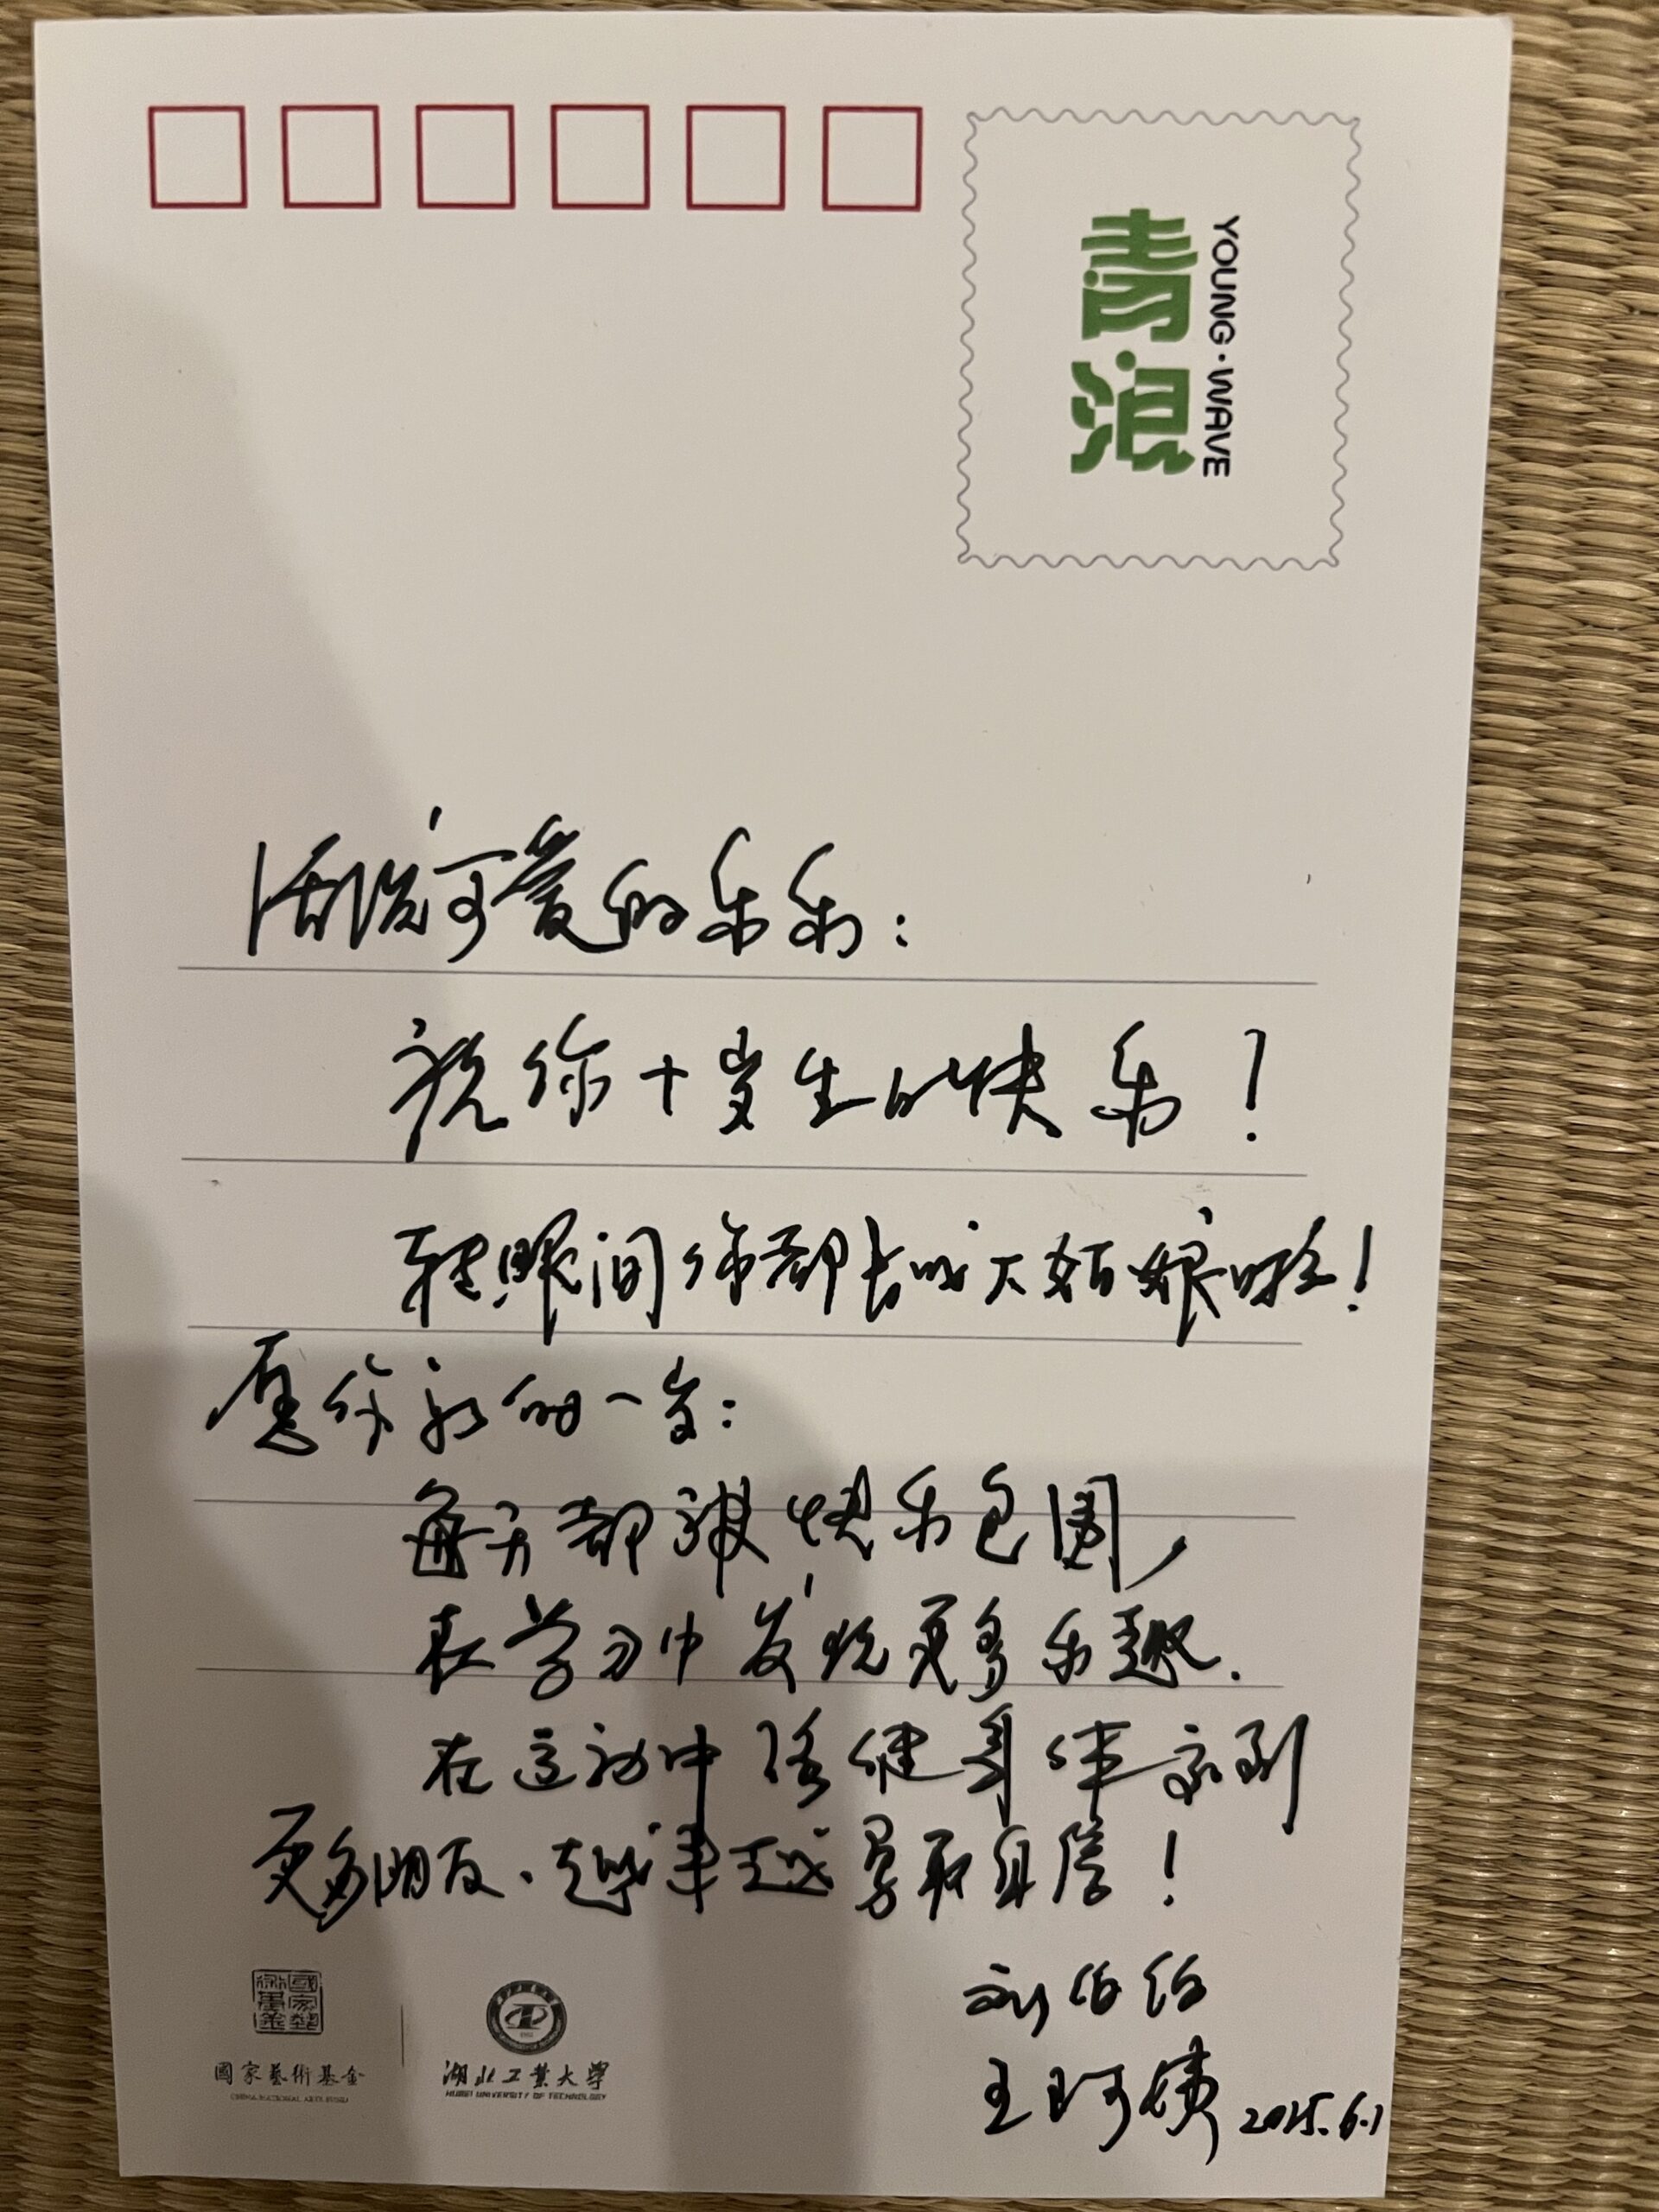 青浪
YOUNG·WAVE
活泼可爱的乐乐：
祝你十岁生日快乐！
转眼间你都长成大姑娘啦！
愿你新的一岁：
每天都被快乐包围，
在学习中发现更多乐趣.
在运动中强健身体交到
更多朋友、越来越勇敢自信！
刘伯伯
王阿姨 2025.6.1
國家藝術基金
國家藝術基金
CHINA NATIONAL ARTS FUND
湖北工业大学
HUBEI UNIVERSITY OF TECHNOLOGY